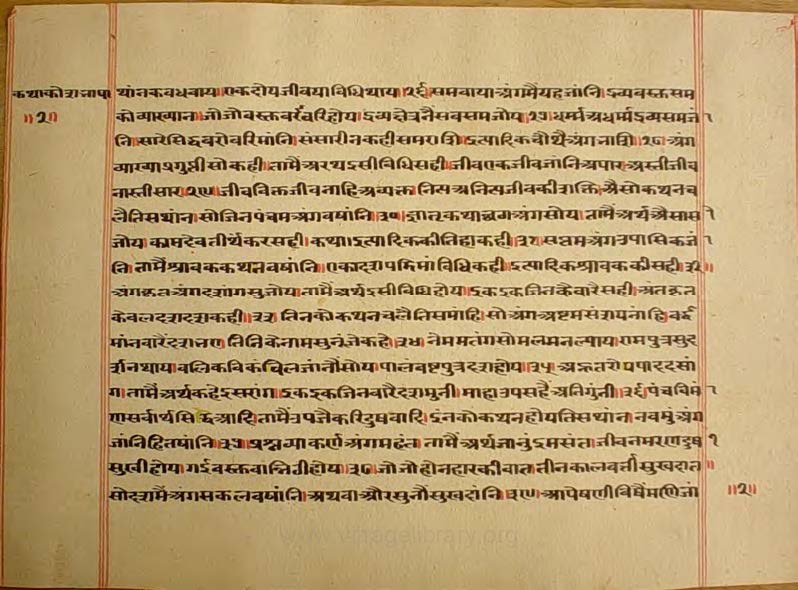 कथाकोश भाषा
॥२॥
थांनकवधवाय ।एकदोयजीवयाविधिथाय ।२६ समवायाअंगमैंयहजांनि ।द्रव्यवस्तसम
कोव्याख्यान ।जोजोवस्तवरंवरिहोय ।द्रव्यक्षेत्रनैंसबसमजोय ।२७ धर्म्मअधर्म्मद्रव्यसमजां
नि ।सारेसिद्धवरोवरिमांनि ।संसारीनकहीसमरात्रि ।इत्यादिकचौथेअंगनात्रि ।२८ अंग
व्याख्याप्रगुप्तीसोकही ।तामैअरथइसीविधिसही ।जीवएकजीवजांनिअपार ।अस्तीजीव
नास्तीसार ।२९ जीवविक्तजीवनाहिअव्यक्त ।नित्सअनित्यजीवकीशक्ति ।अैसोकथनच
लैतिसथांन ।सोजिनपंचमअंगवषांनि ।३० ज्ञातृकथाछगअंगसोय ।तामैंअर्थअैसास
जोय ।कामदेवतीर्थकरसही ।कथाइत्यादिककीतिहाकही ।३१ सप्तमअंगउपासिकजां
नि ।तामैंश्रावककथनवषांनि ।एकादशपडिमांविधिकही ।इत्यादिकश्रावककीसही ।३२॥
अंगहृतअंगदशांगसुजोय ।तामैंअर्थइसीविधिहोय ।इकइकजिनकैवारैसही ।अंतकृत
केवलदशदशकही ।३३ तिनकोकथनचलैतिसमांहि ।सोअंगअष्टमसंशयनाहि ।वर्द्ध
मांनवारैंदशजए ।तिनिकेनामसुनंजेकहे ।३४ नेममतंगसोमलमनल्याय ।रामपुत्रसुद
र्शनथाय ।वलिकविकंविलजांनौंसोय ।पालंवष्टपुत्रदशहोय ।३५ अनुत्तरोपपाददसां
ग ।तामैंअर्थकहेइसरांग ।इकइकजिनवारैदशमुनी ।माहाउपसहैअतिगुंनी ।३६ पंचविमां
णसर्वार्थसिद्धआदि ।तामैंउपजैकरिदुषवादि ।इनकोकथनहोयतिसथांन ।नवमुंअंग
जांनिहितषांनि ।३७ प्रश्नव्याकर्णअंगमहंत ।तामैंअर्थजानुंइमसंत ।जीवनमरणदुष
सुखीहोय ।गईवस्तवान्निहीहोय ।३८ जोजोहोनहारकीवात ।तीनकालवर्तीसुखरात॥
सोदशमैंअंगसकलवषांनि ।अथवाऔरसुनौसुखदांनि ।३९ आपेषणीविषैंमणिजां
॥२॥
www.vmagelibrary.org